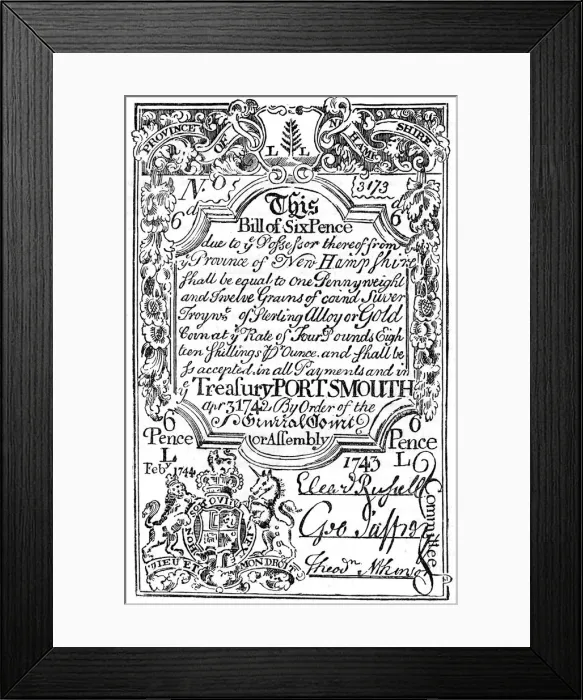 PROVINCE OF N HAMP SHIRE
L L
No 3173
6d 6d
This
Bill of Six Pence
due to ẙ Poſſeſſor thereof from
ẙ Province of New Hampſhire
ſhall be equal to one Pennyweight
and Twelve Grains of coind Silver
Troywt of Sterling Alloy or Gold
Coin at ẙ Rate of Four Pounds Eigh
teen ſhillings ℔ Ounce. and ſhall be
ſs accepted in all Payments and in
ẙ Treaſury PORTSMOUTH
Apr 3 1742 By Order of the
General Court
or Aſſembly
6 6
Pence Pence
L L
Feb 1744 1743
Elead Ruſſell
Geo Jaffrey
Theodr Atkinson
Committee
HONI
DIEU ET MON DROIT